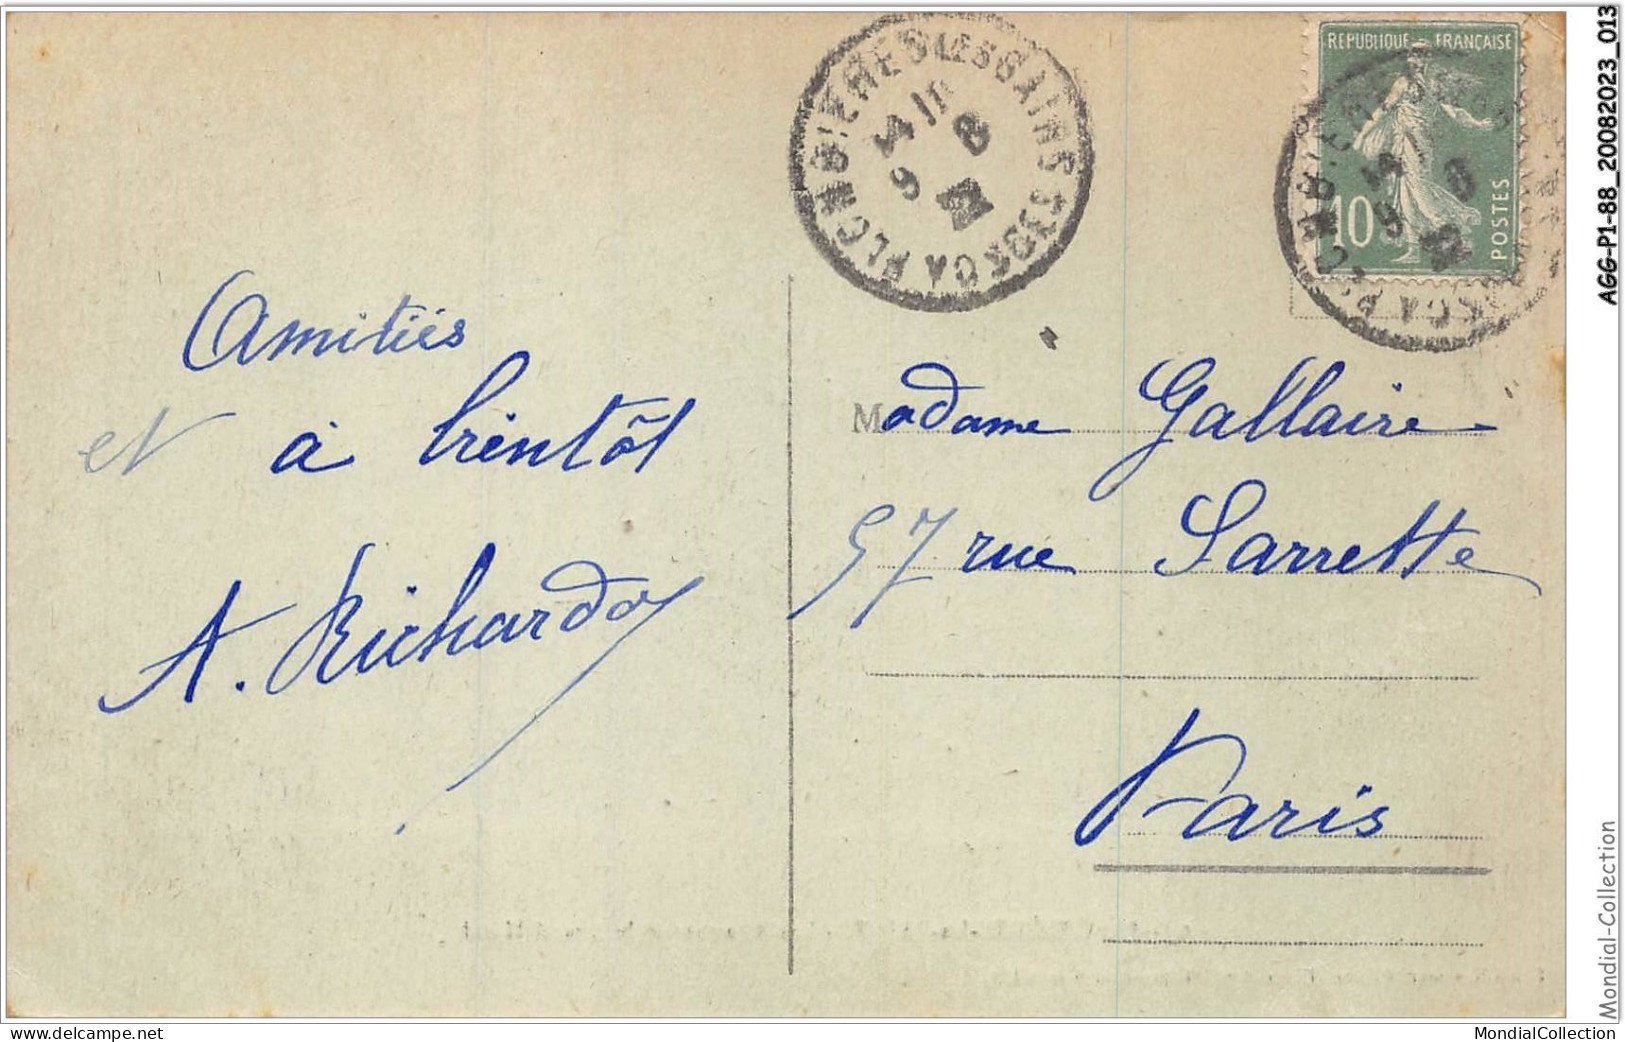 Amitiés
et à bientôt
A. Richardoy
PLOMBIERES LES BAINS VOSGES
14
9 8
REPUBLIQUE FRANÇAISE
10
POSTES
Madame Gallaire
57 rue Sarrette
Paris
AGG-P1-88_20082023_013
Mondial-Collection
www.delcampe.net
MondialCollection